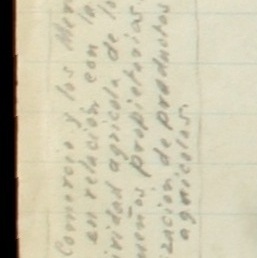 Comercio y los Mer
en relación con la
ividad agrícola de lo
ueños propietarios.
zación de productos
agrícolas.